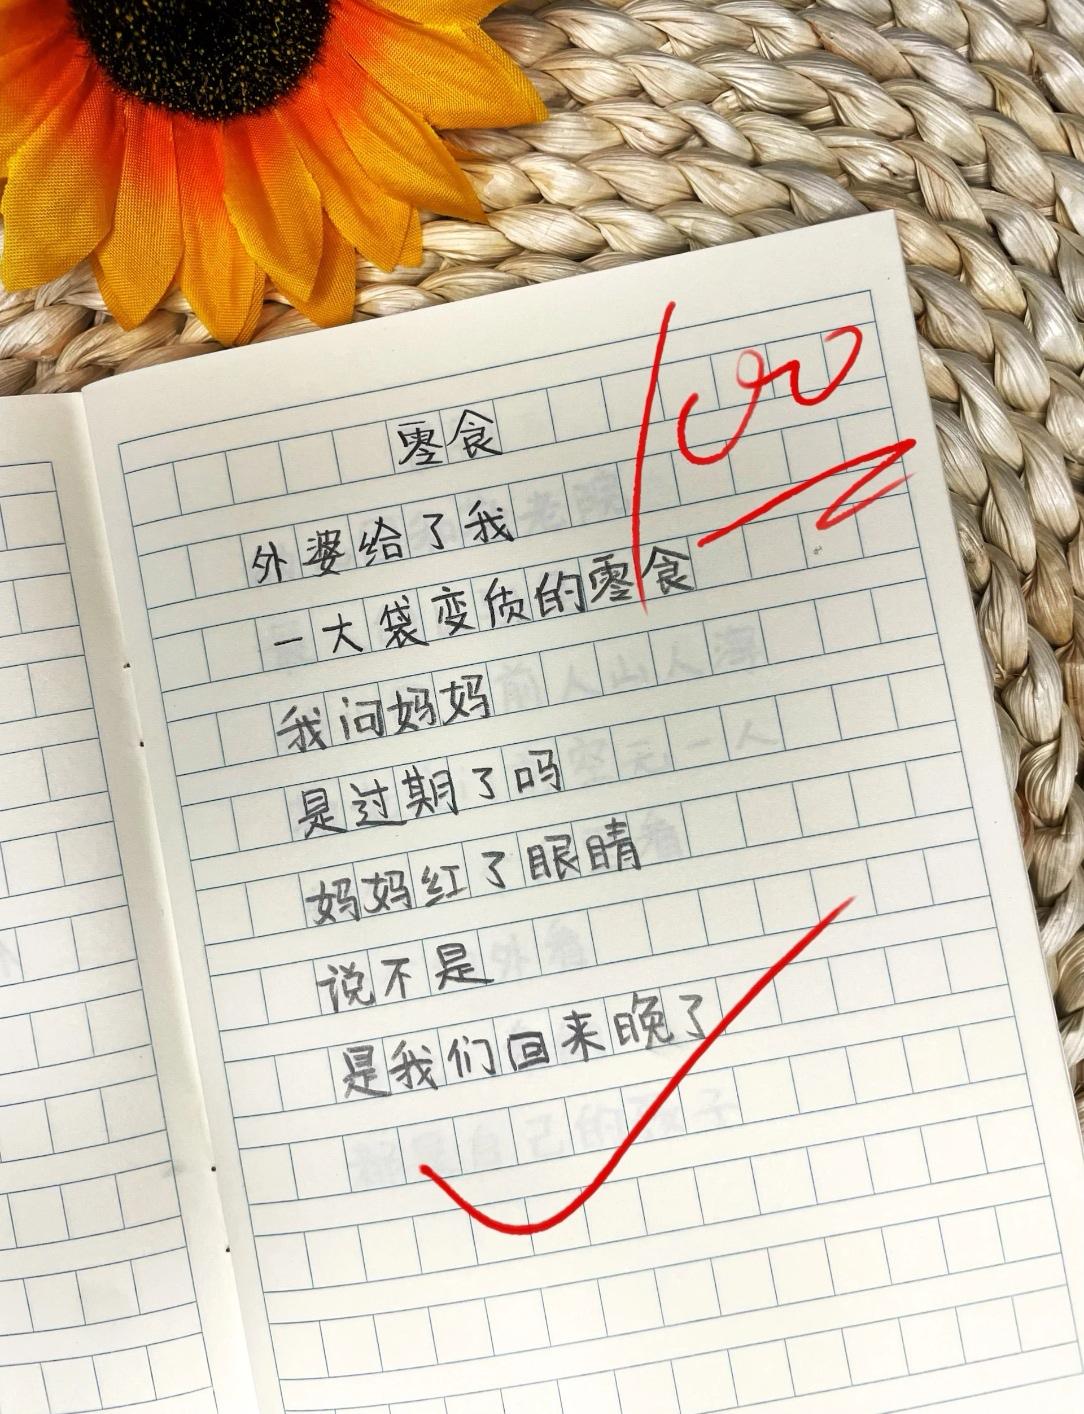 零食
100
外婆给了我
一大袋变质的零食
我问妈妈
是过期了吗
妈妈红了眼睛
说不是
是我们回来晚了